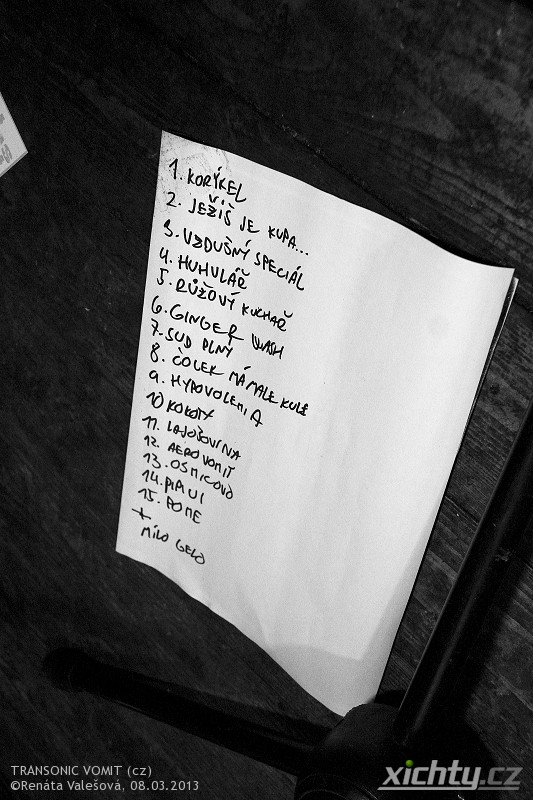 1. KORÝKEL
2. JEŽIŠ JE KUPA...
3. VZDUŠNÝ SPECIÁL
4. HUHULÁŘ
5. RŮŽOVÝ KUCHAŘ
6. GINGER WASH
7. SUD PLNÝ
8. ČOLEK MÁ MALE KULE
9. HYPOVOLEMIA
10 KOKOTY
11. LAJOŠOVINA
12. AEROVOMIT
13. OSMICOVÝ
14. PIPIUI
15. POME
+
MILO GELO
TRANSONIC VOMIT (cz)
©Renáta Valešová, 08.03.2013
xichty.cz